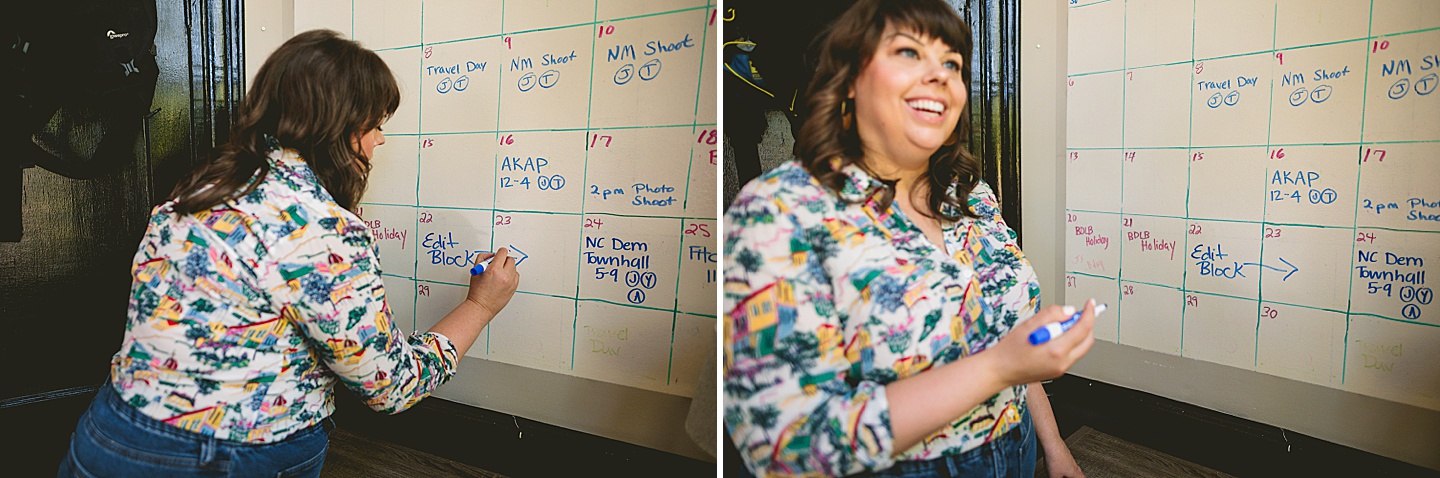 Lowepro
8
9
10
Travel Day
J T
NM Shoot
J T
NM Shoot
J T
15
16
17
18
AKAP
12-4 J T
2pm Photo
Shoot
22
23
24
25
BDLB
Holiday
Edit
Block →
NC Dem
Townhall
5-9 J Y
A
29
Travel
Day
6
7
8
9
10
Travel Day
J T
NM Shoot
J T
NM Sh
J T
13
14
15
16
17
AKAP
12-4 J T
2pm Photo
Shoo
20
21
22
23
24
BDLB
Holiday
BDLB
Holiday
Edit
Block →
NC Dem
Townhall
5-9 J Y
A
27
28
29
30
Travel
Day